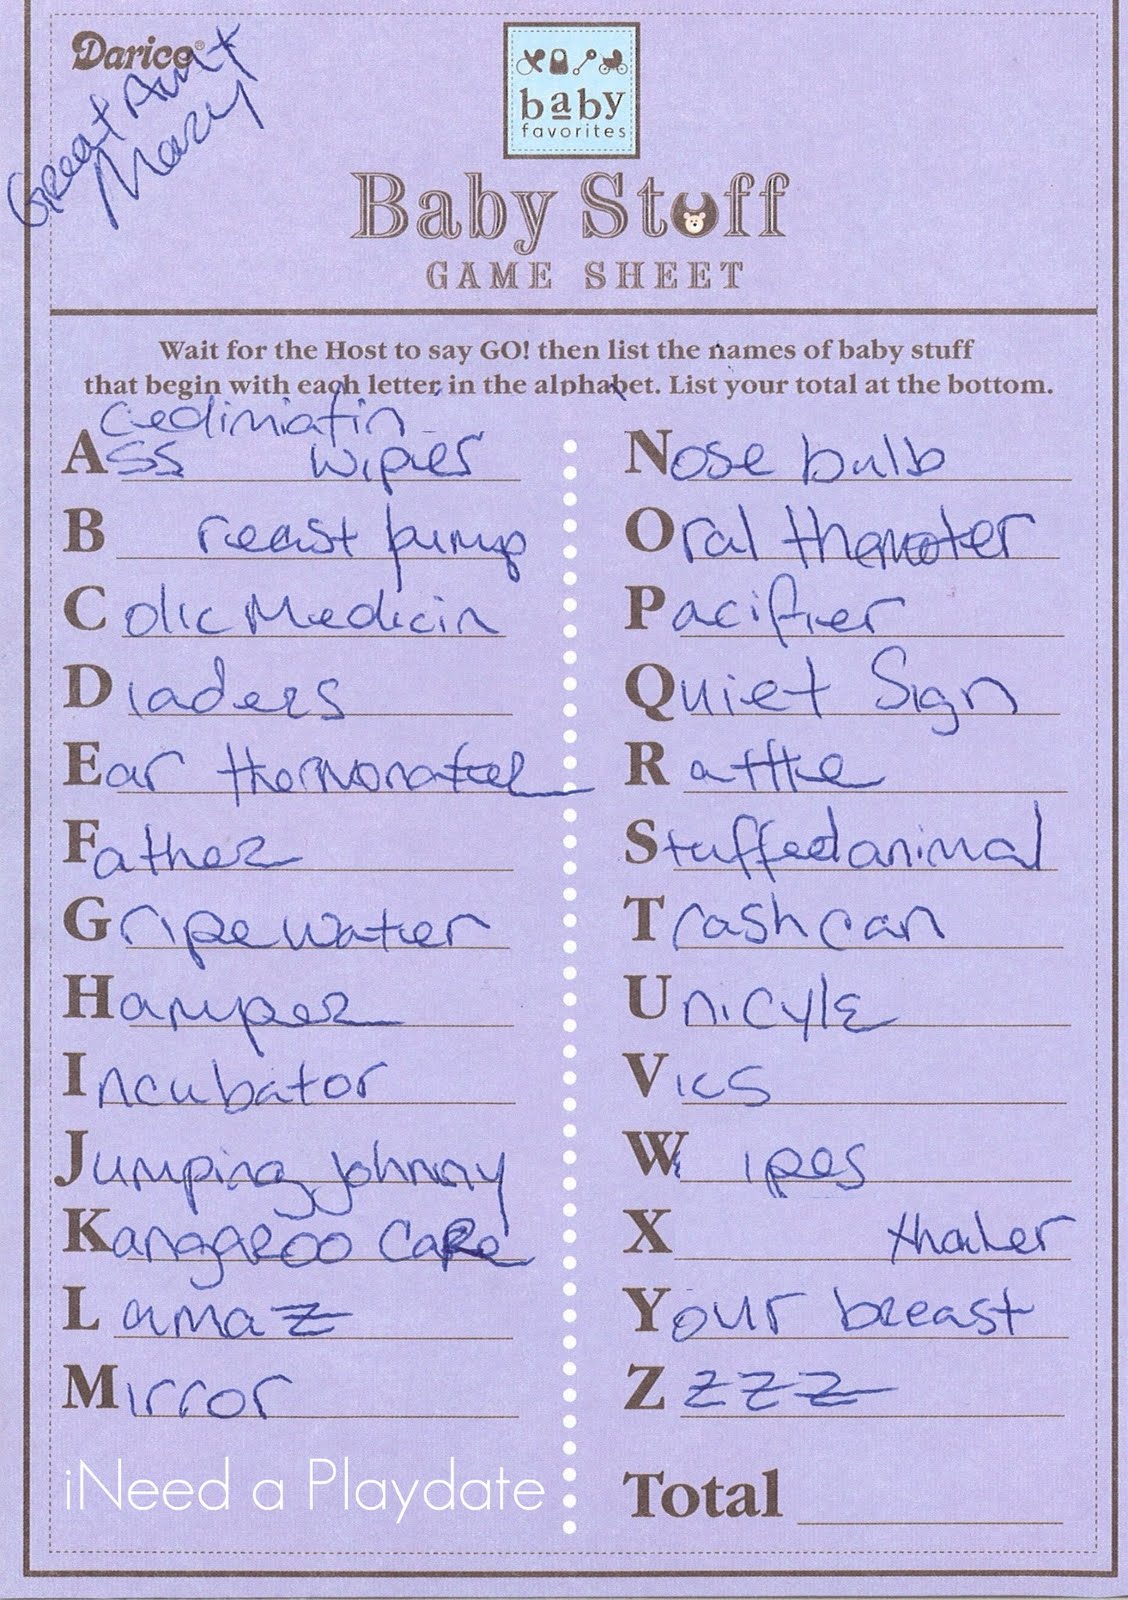 Darice®
Great Aunt
Mary
baby
favorites
Baby Stuff
GAME SHEET
Wait for the Host to say GO! then list the names of baby stuff
that begin with each letter in the alphabet. List your total at the bottom.
Ass wiper
B reast pump
Colic Medicin
Diaders
Ear
Father
Gripe water
Hamper
Incubator
Jumping Johnny
Kangaroo Care
Lamaz
Mirror
Nose bulb
Oral
Pacifier
Quiet Sign
Rattle
Stuffed animal
Trash can
Unicyle
Vics
W ipes
X
Your breast
Z zzz
Total
iNeed a Playdate